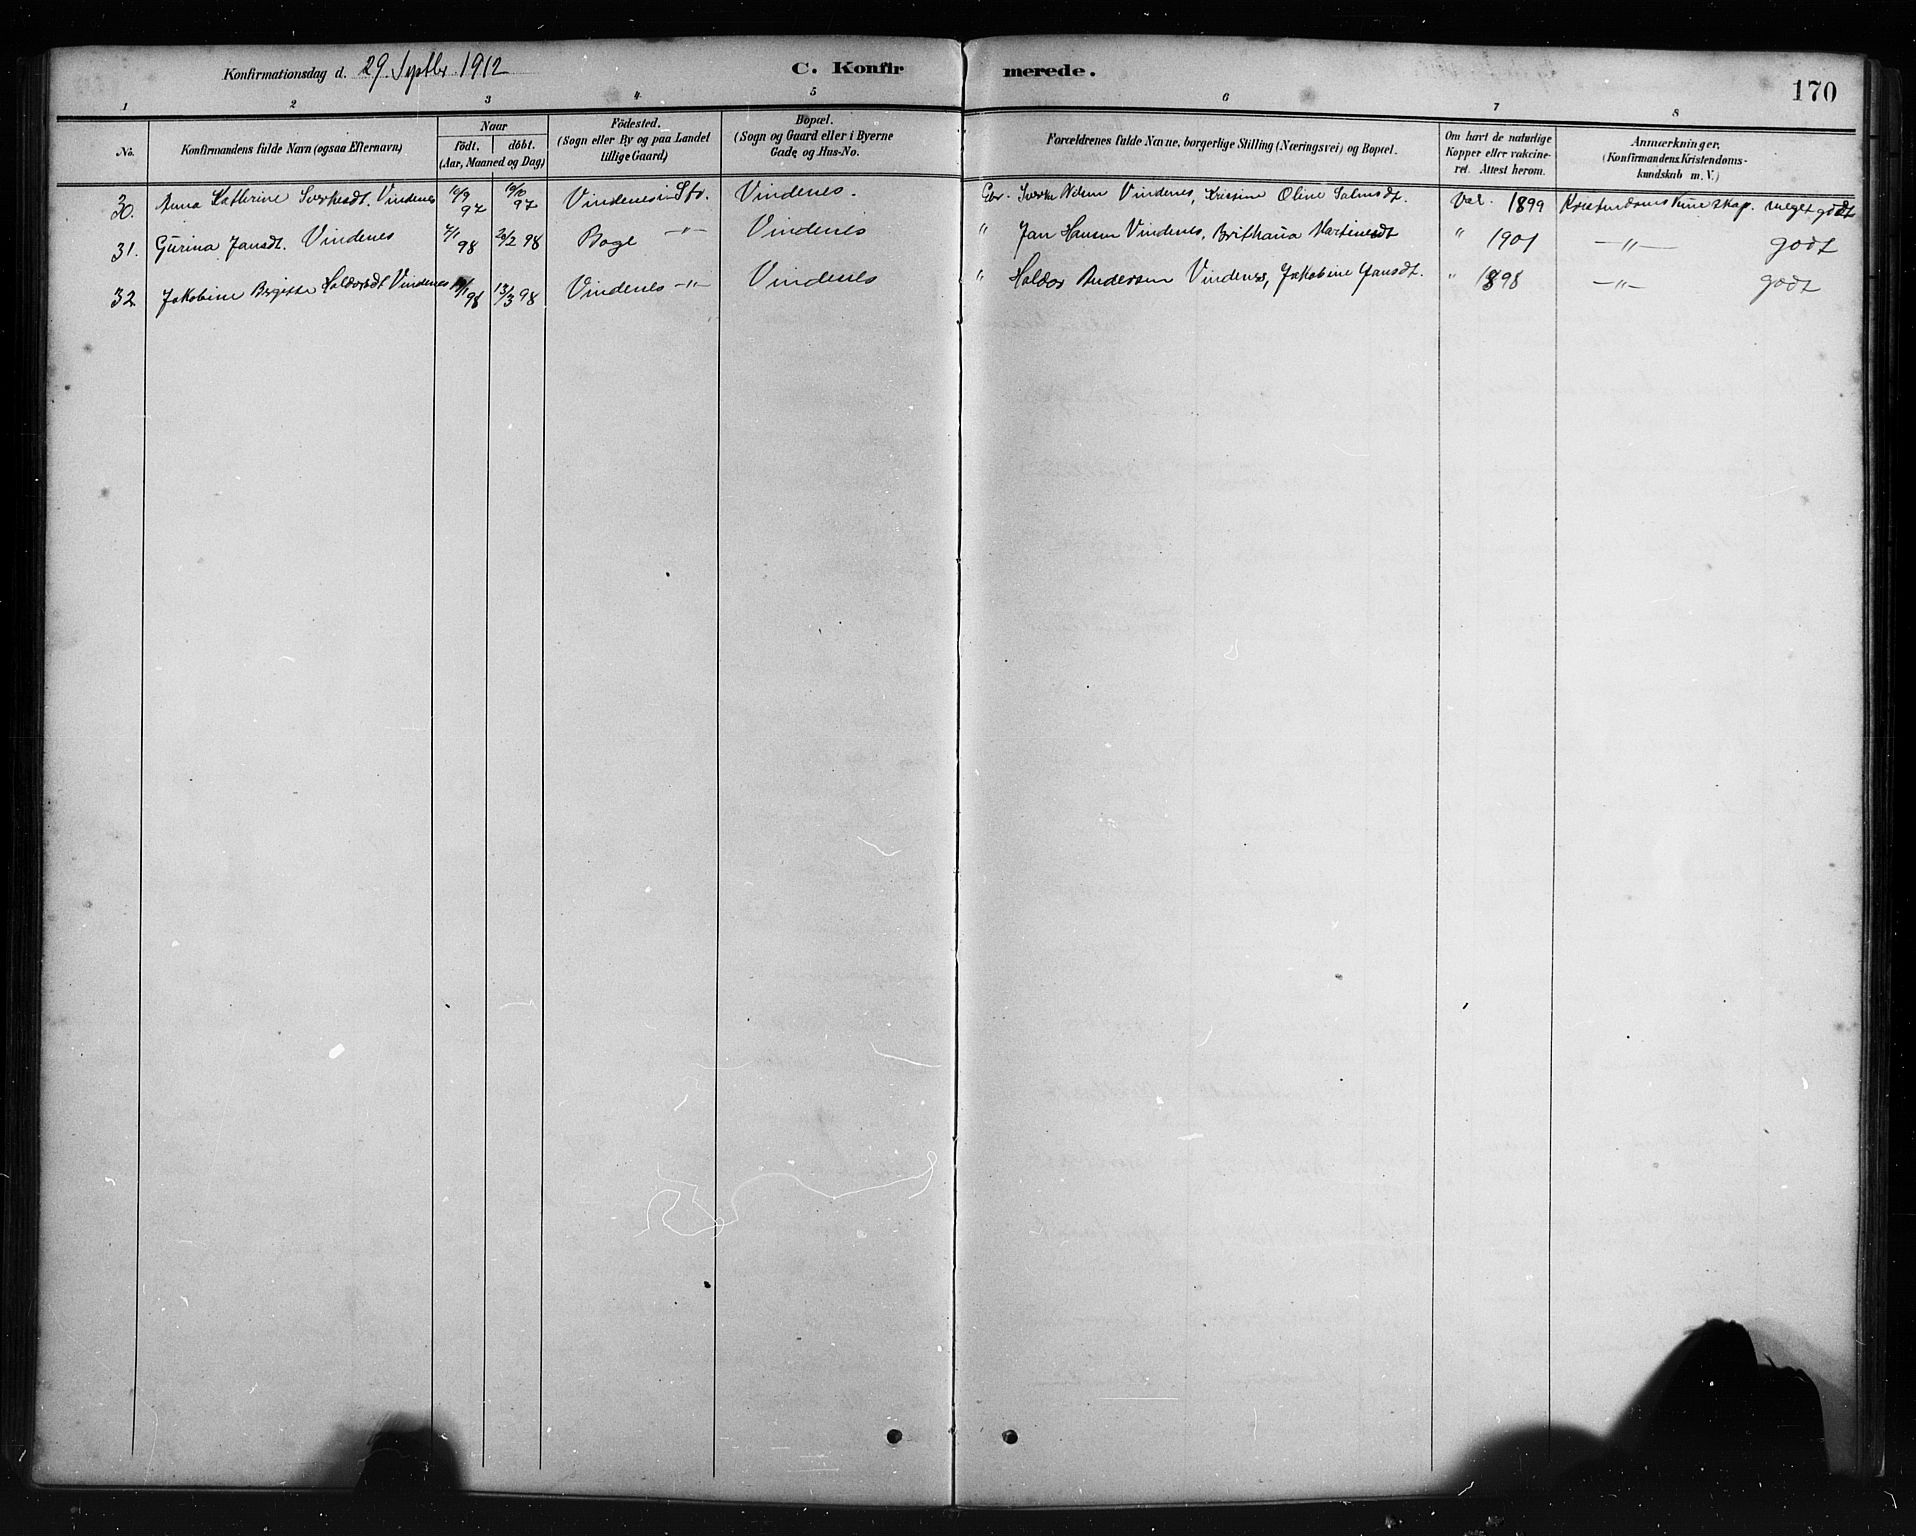 Konfirmationsdag d. 29. Septbr. 1912
C. Konfirmerede.
170
1 2 3 4 5 6 7 8
No.
Konfirmandens fulde Navn (ogsaa Efternavn)
Naar
födt. döbt.
(Aar, Maaned og Dag)
Födested.
(Sogn eller By og paa Landet
tillige Gaard)
Bopæl.
(Sogn og Gaard eller i Byerne
Gade og Hus-No.
Forældrenes fulde Navne, borgerlige Stilling (Næringsvei) og Bopæl.
Om havt de naturlige
Kopper eller vakcine-
ret. Attest herom.
Anmærkninger,
(Konfirmandens Kristendoms-
kundskab m. V.)
30. Anna Kathrine Sverkesdt. Vindenes 97 97 Vindenes i Str. Vindenes. Gbr. Sverke Vindenes, Kristine Oline Salmsdt. Vac. 1899 Kristendomskunnskap. meget godt
31. Gurina Jansdt. Vindenes 7/1 98 20/2 98 Boge -"- Vindenes " Jan Hansen Vindenes, Brithana Martinesdt " 1901 -"- godt
32 Jakobine Birgitte Haldorsdt Vindenes 98 13/3 98 Vindenes -"- Vindenes " Haldor Andersen Vindenes, Jakobine Jansdt. " 1898 -"- godt